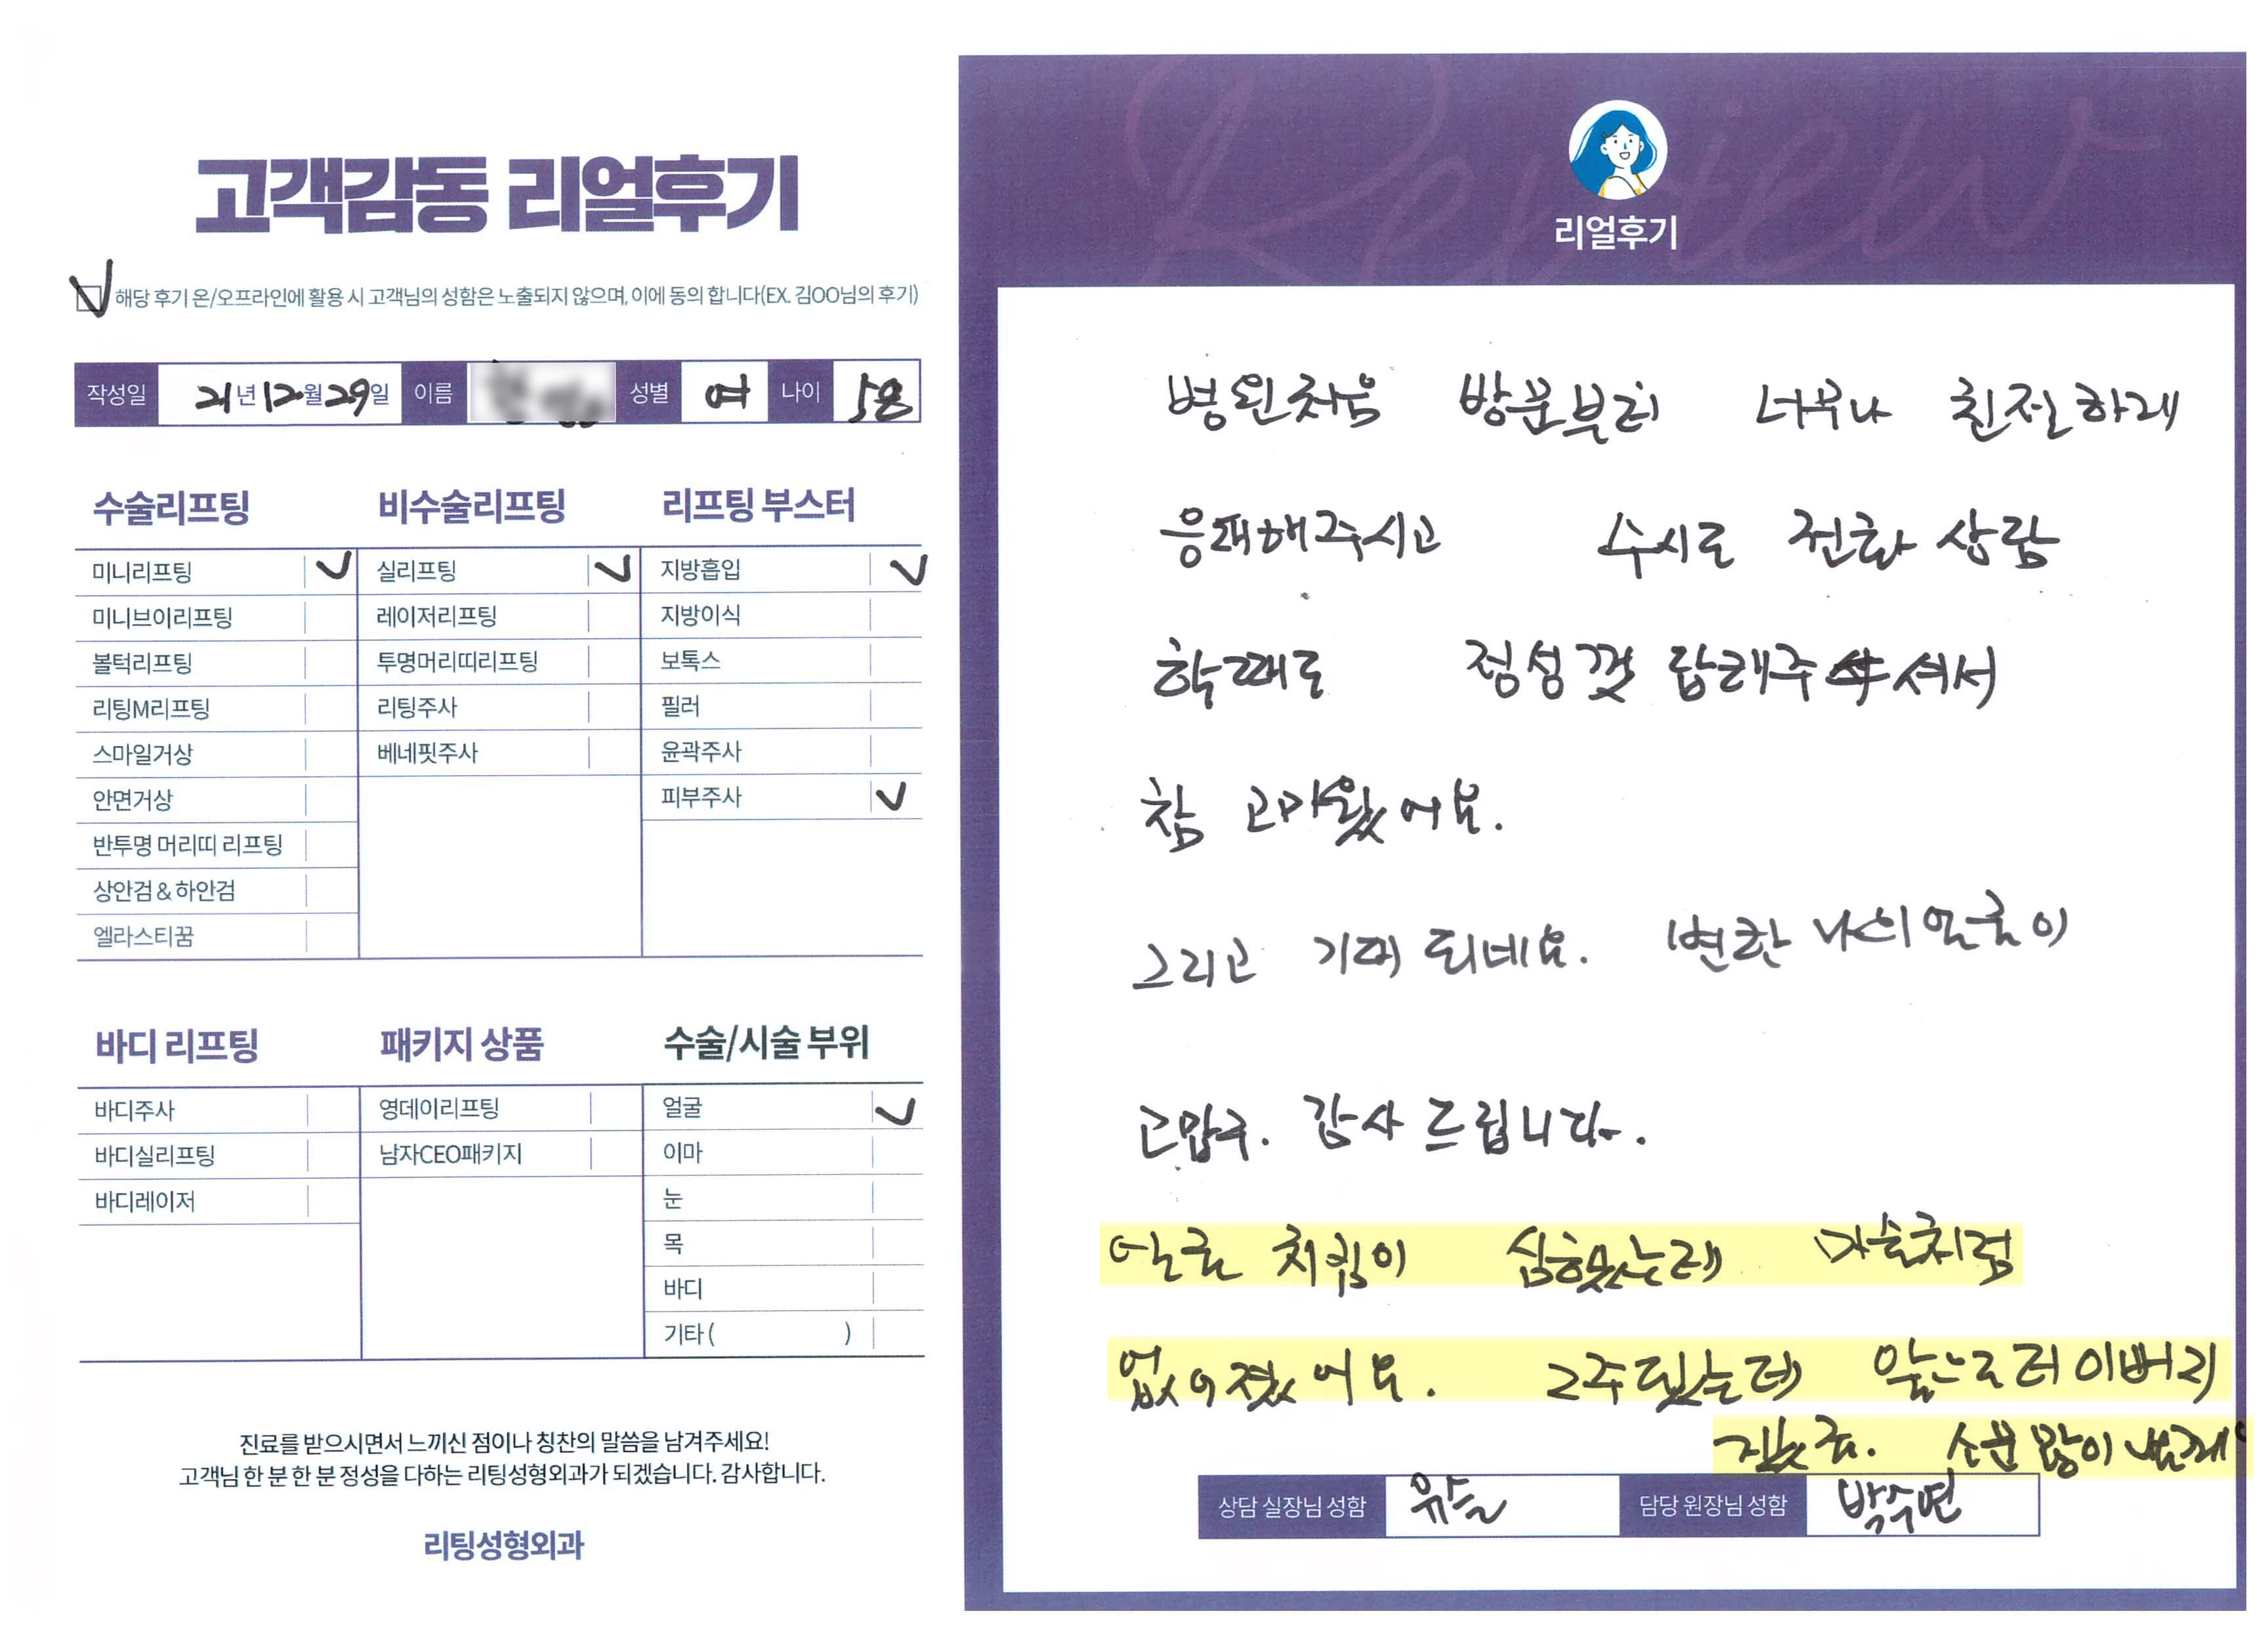 고객감동 리얼후기
해당 후기 온/오프라인에 활용 시 고객님의 성함은 노출되지 않으며, 이에 동의 합니다(EX. 김OO님의 후기)
작성일 21년 12월 29일 이름 성별 여 나이 58
수술리프팅
미니리프팅
미니브이리프팅
볼턱리프팅
리팅M리프팅
스마일거상
안면거상
반투명 머리띠 리프팅
상안검 & 하안검
엘라스티꿈
비수술리프팅
실리프팅
레이저리프팅
투명머리띠리프팅
리팅주사
베네핏주사
리프팅 부스터
지방흡입
지방이식
보톡스
필러
윤곽주사
피부주사
바디 리프팅
바디주사
바디실리프팅
바디레이저
패키지 상품
영데이리프팅
남자CEO패키지
수술/시술 부위
얼굴
이마
눈
목
바디
기타 ( )
진료를 받으시면서 느끼신 점이나 칭찬의 말씀을 남겨주세요!
고객님 한 분 한 분 정성을 다하는 리팅성형외과가 되겠습니다. 감사합니다.
리팅성형외과
Review
리얼후기
병원처음 방문부터 너무나 친절하게
응대해주시고 수시로 전화 상담
할때도 정성껏 답해주셔서
참 고마웠어요.
그리고 기대 되네요. 변한 나의 얼굴이
고맙구. 감사 드립니다.
얼굴 처짐이 심했는데 마술처럼
없어졌어요. 2주됐는데 앞으로 더 이뻐
지겠죠. 소문 많이 낼께
상담 실장님 성함 담당 원장님 성함 박수연